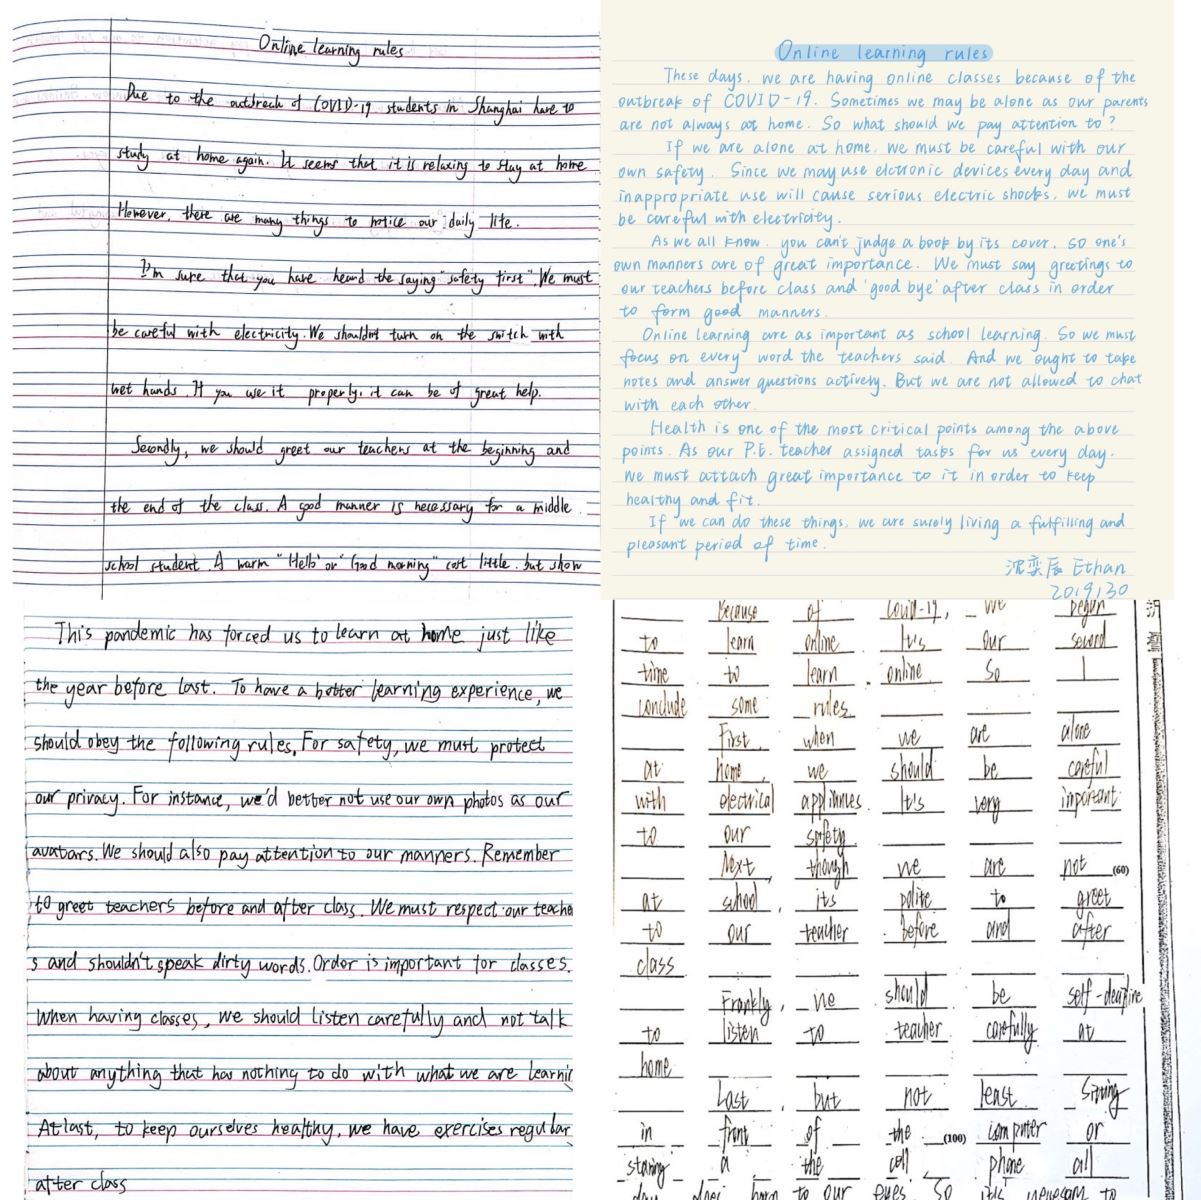 Online learning rules
Due to the outbreak of COVID-19 students in Shanghai have to
study at home again. It seems that it is relaxing to stay at home
However, there are many things to notice our daily life.
I'm sure that you have heard the saying "safety first". We must
be careful with electricity. We shouldn't turn on the switch with
wet hands. If you use it properly, it can be of great help.
Secondly, we should greet our teachers at the beginning and
the end of the class. A good manner is necessary for a middle
school student. A warm "Hello" or "Good morning" cost little. but show
Online learning rules
These days. we are having online classes because of the
outbreak of COVID-19. Sometimes we may be alone as our parents
are not always at home. So what should we pay attention to?
If we are alone at home. we must be careful with our
own safety. Since we may use elctronic devices every day and
inappropriate use will cause serious electric shocks, we must
be careful with electricity.
As we all know. you can't judge a book by its cover. so one's
own manners are of great importance. We must say greetings to
our teachers before class and 'good bye' after class in order
to form good manners.
Online learning are as important as school learning. So we must
focus on every word the teachers said. And we ought to take
notes and answer questions actively. But we are not allowed to chat
with each other.
Health is one of the most critical points among the above
points. As our P.E. teacher assigned tasks for us every day.
We must attach great importance to it in order to keep
healthy and fit.
If we can do these things, we are surely living a fulfilling and
pleasant period of time.
沈奕辰 Ethan
2019130
This pandemic has forced us to learn at home just like
the year before last. To have a better learning experience, we
should obey the following rules. For safety, we must protect
our privacy. For instance, we'd better not use our own photos as our
avatars. We should also pay attention to our manners. Remember
to greet teachers before and after class. We must respect our teache
s and shouldn't speak dirty words. Order is important for classes.
When having classes, we should listen carefully and not talk
about anything that has nothing to do with what we are learnin
At last, to keep ourselves healthy, we have exercises regular
after class
Because of Covid-19, we begun
to learn online It's our second
time to learn online. So I
conclude some rules
First, when we are alone
at home, we should be careful
with electrical appliances. It's very important
to our safety.
Next, though we are not (60)
at school, its polite to greet
to our teacher before and after
class
Frankly, we should be
to listen to teacher carefully at
home
Last, but not least sitting
in front of the (100) computer or
staring a the cell phone all
day does harm to our eyes. So it's necessary to